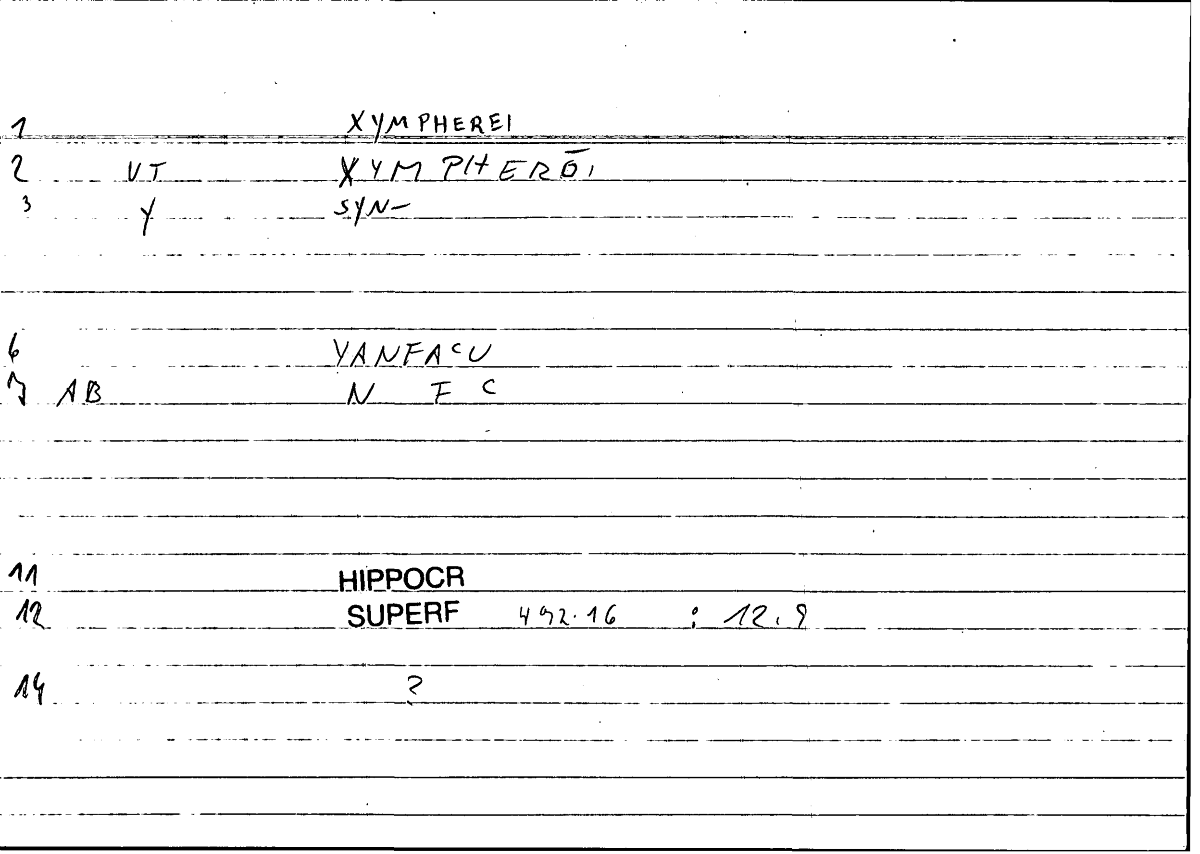 1 XYMPHEREI
2 VT XYMPHERŌI
3 Y SYN-
6 YANFACU
7 AB N F C
11 HIPPOCR
12 SUPERF 492.16 : 12.9
14 2